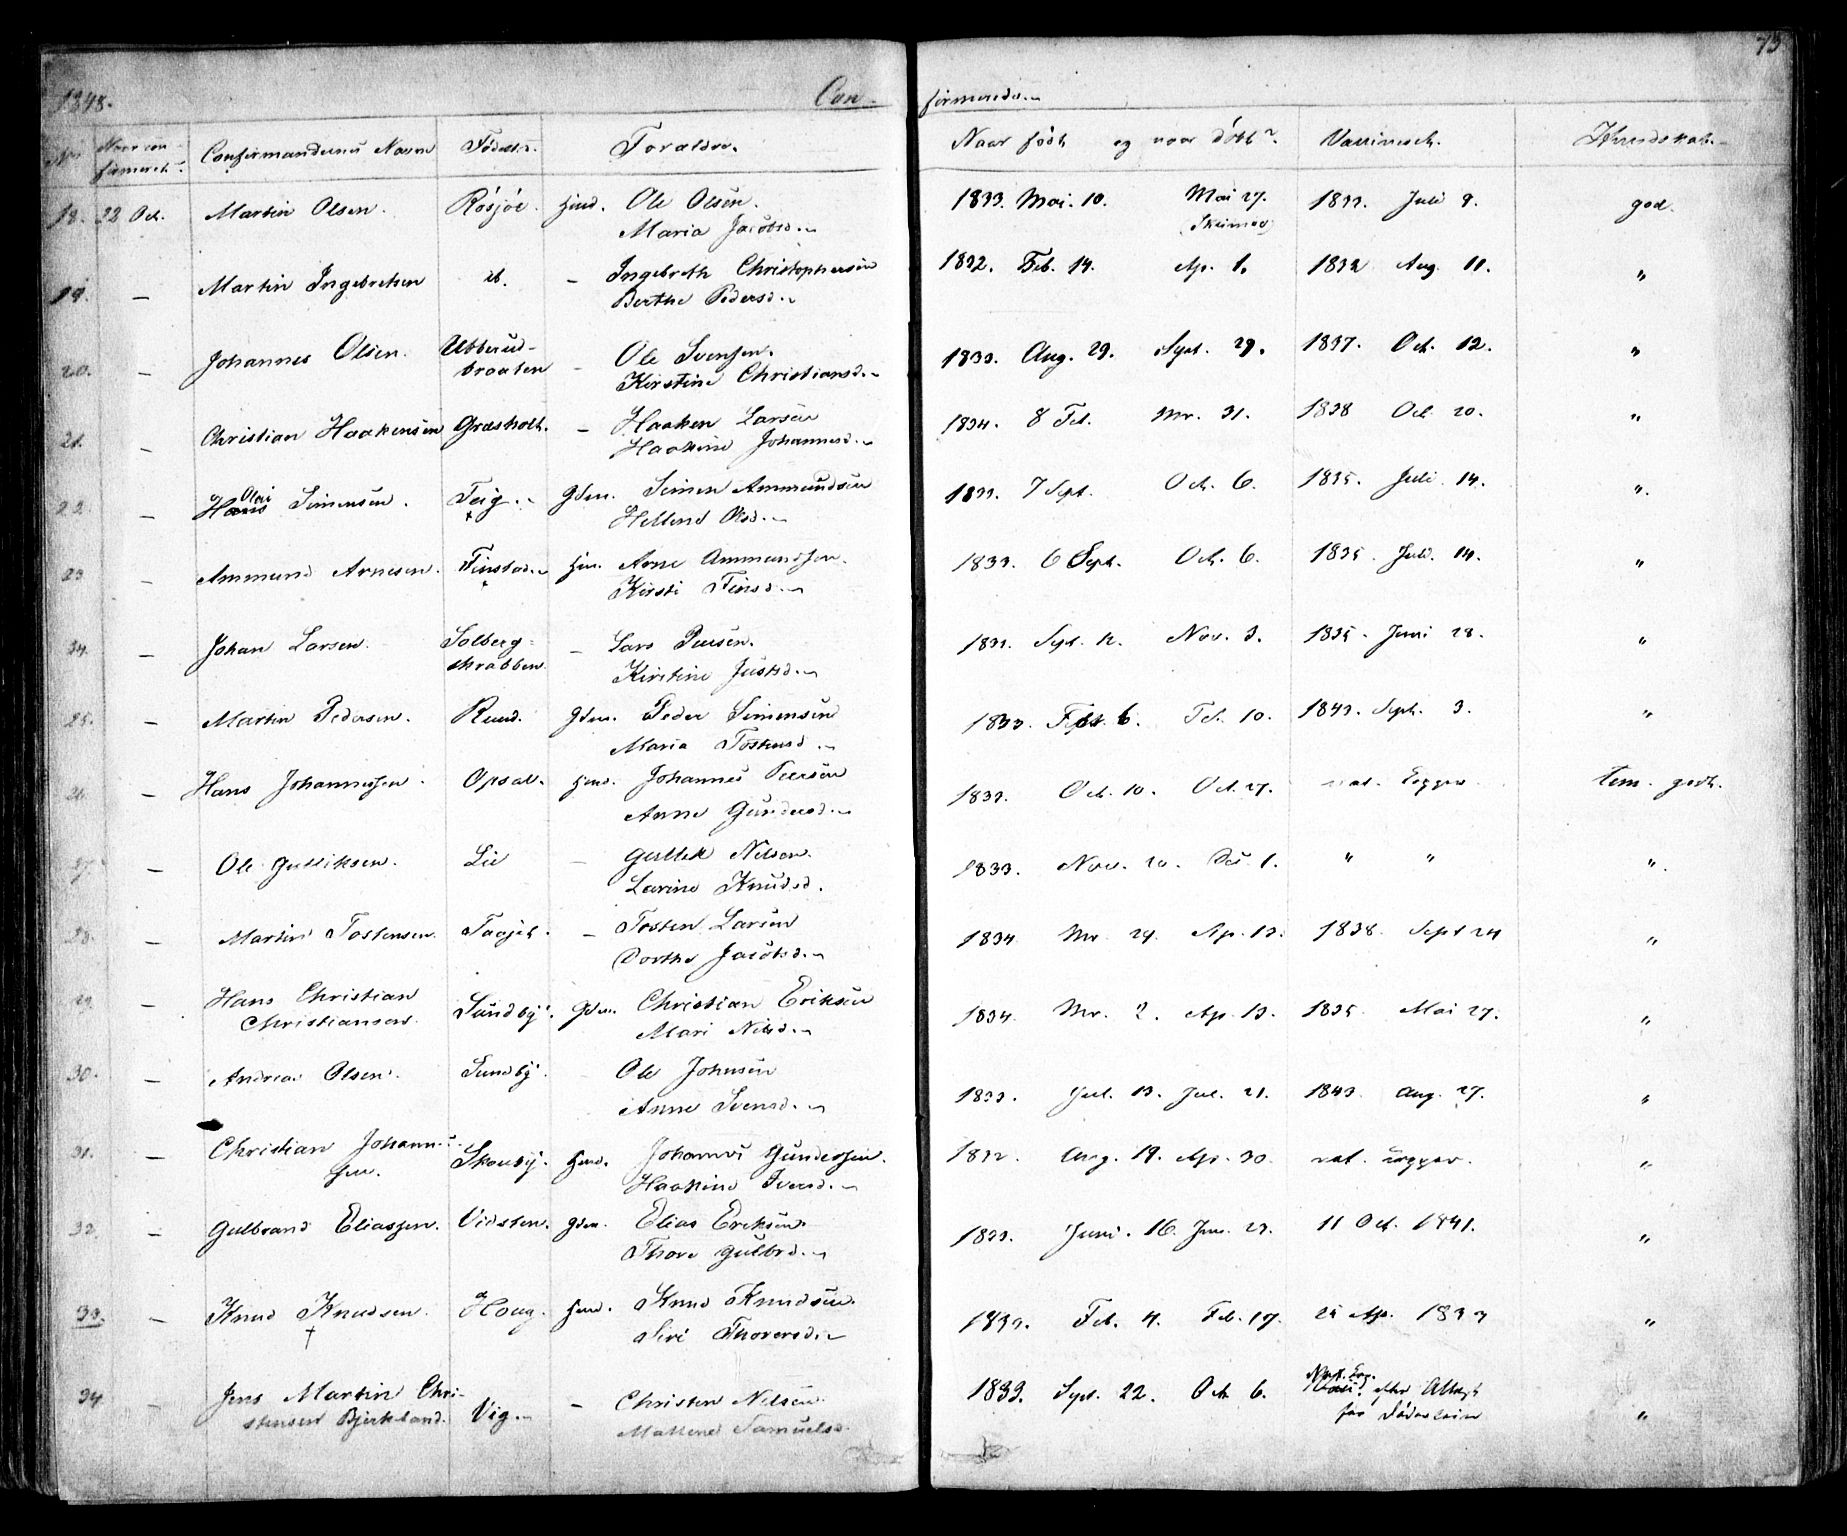 73
1848. Con- firmerede.
No. Naar con- firmeret. Confirmandernes Navn Fødested. Forældre. Naar født og naar døbt? Vaccineret. Kundskab.
18. 22 Oct. Martin Olsen. Røsjøe. Huusd. Ole Olsen. 1833. Mai. 10. Mai 27. 1833. Juli 9. god.
Maria Jacobsd.
19. — Martin Ingebretsen ib. — Ingebreth Christophersen 1832. Feb. 14. Ap. 1. 1832 Aug. 11. "
Berthe Pedersd.
20. — Johannes Olsen. Ubberud- Ole Svensen. 1833. Aug. 29. Sept. 29. 1837. Oct. 12. "
braaten — Kirstine Christiansd.
21. — Christian Haakensen Græsholt. — Haaken Larsen 1834. 8 Feb. Mr. 31. 1838 Oct. 20. "
Haakine Johannesd.
22. — Hans Olai Simensen. Teig. Gdm. Simen Ammundsen 1833. 7 Sept. Oct. 6. 1835. Juli 14. "
Hellene Olsd.
23 — Ammund Arnesen. Finstad. Arne Ammundsen. 1833. 6 Sept. Oct. 6. 1835. Juli. 14. "
Kirsti Finsd.
24. — Johan Larsen. Solberg- — Lars Peersen. 1833. Sept. 12. Nov. 3. 1835. Juni 28. "
skrabben. Kirstine Justsd.
25. — Martin Pedersen. Ruud. Gdm. Peder Simensen 1833. Feb. 6. Feb. 10. 1843. Sept. 3. "
Maria Tostensd.
26. — Hans Johannessen. Opsal. Johannes Peersen 1833. Oct. 10. Oct. 27. nat. Kopper tem. godt.
Anne Gundersd.
27. — Ole Gulliksen. Lie — Gullek Nilsen. 1833. Nov. 20. Dec. 1. " " "
Larine Knudsd.
28. — Martin Tostensen. — Tosten Larsen 1834 Mr. 29. Ap. 13. 1838. Sept 24 "
Dorthe Jacobsd.
29. — Hans Christian Sundby. Gdm. Christian Eriksen 1834. Mr. 2. Ap. 13. 1835. Mai 27. "
Christiansen. Mari Nilsd.
30. — Andreas Olsen. Sundby. Ole Johnsen 1833. Jul. 13. Jul. 21. 1843. Aug. 27. "
Anne Svensd.
31. — Christian Johann- Skouby. Johannes Gundersen. 1832. Aug. 19. 30. nat. Kopper. "
sen. Haakine Iversd.
32. — Gulbrand Eliassen. Vidsten. Gdm. Elias Eriksen 1833. Juni. 16. Jun. 23. 11 Oct. 1841. "
Thore Gulbrd.
33. — Knud Knudsen. Houg. Knud Knudsen. 1833. Feb. 4. Feb. 17. 25 Ap. 1833 "
Siri Thoresd.
34 — Jens Martin Chri- Vig. — Christen Nilsen. 1833. Sept. 22. Oct. 6. efter Attest "
stensen Bjerkland. Mallene Samuelsd.